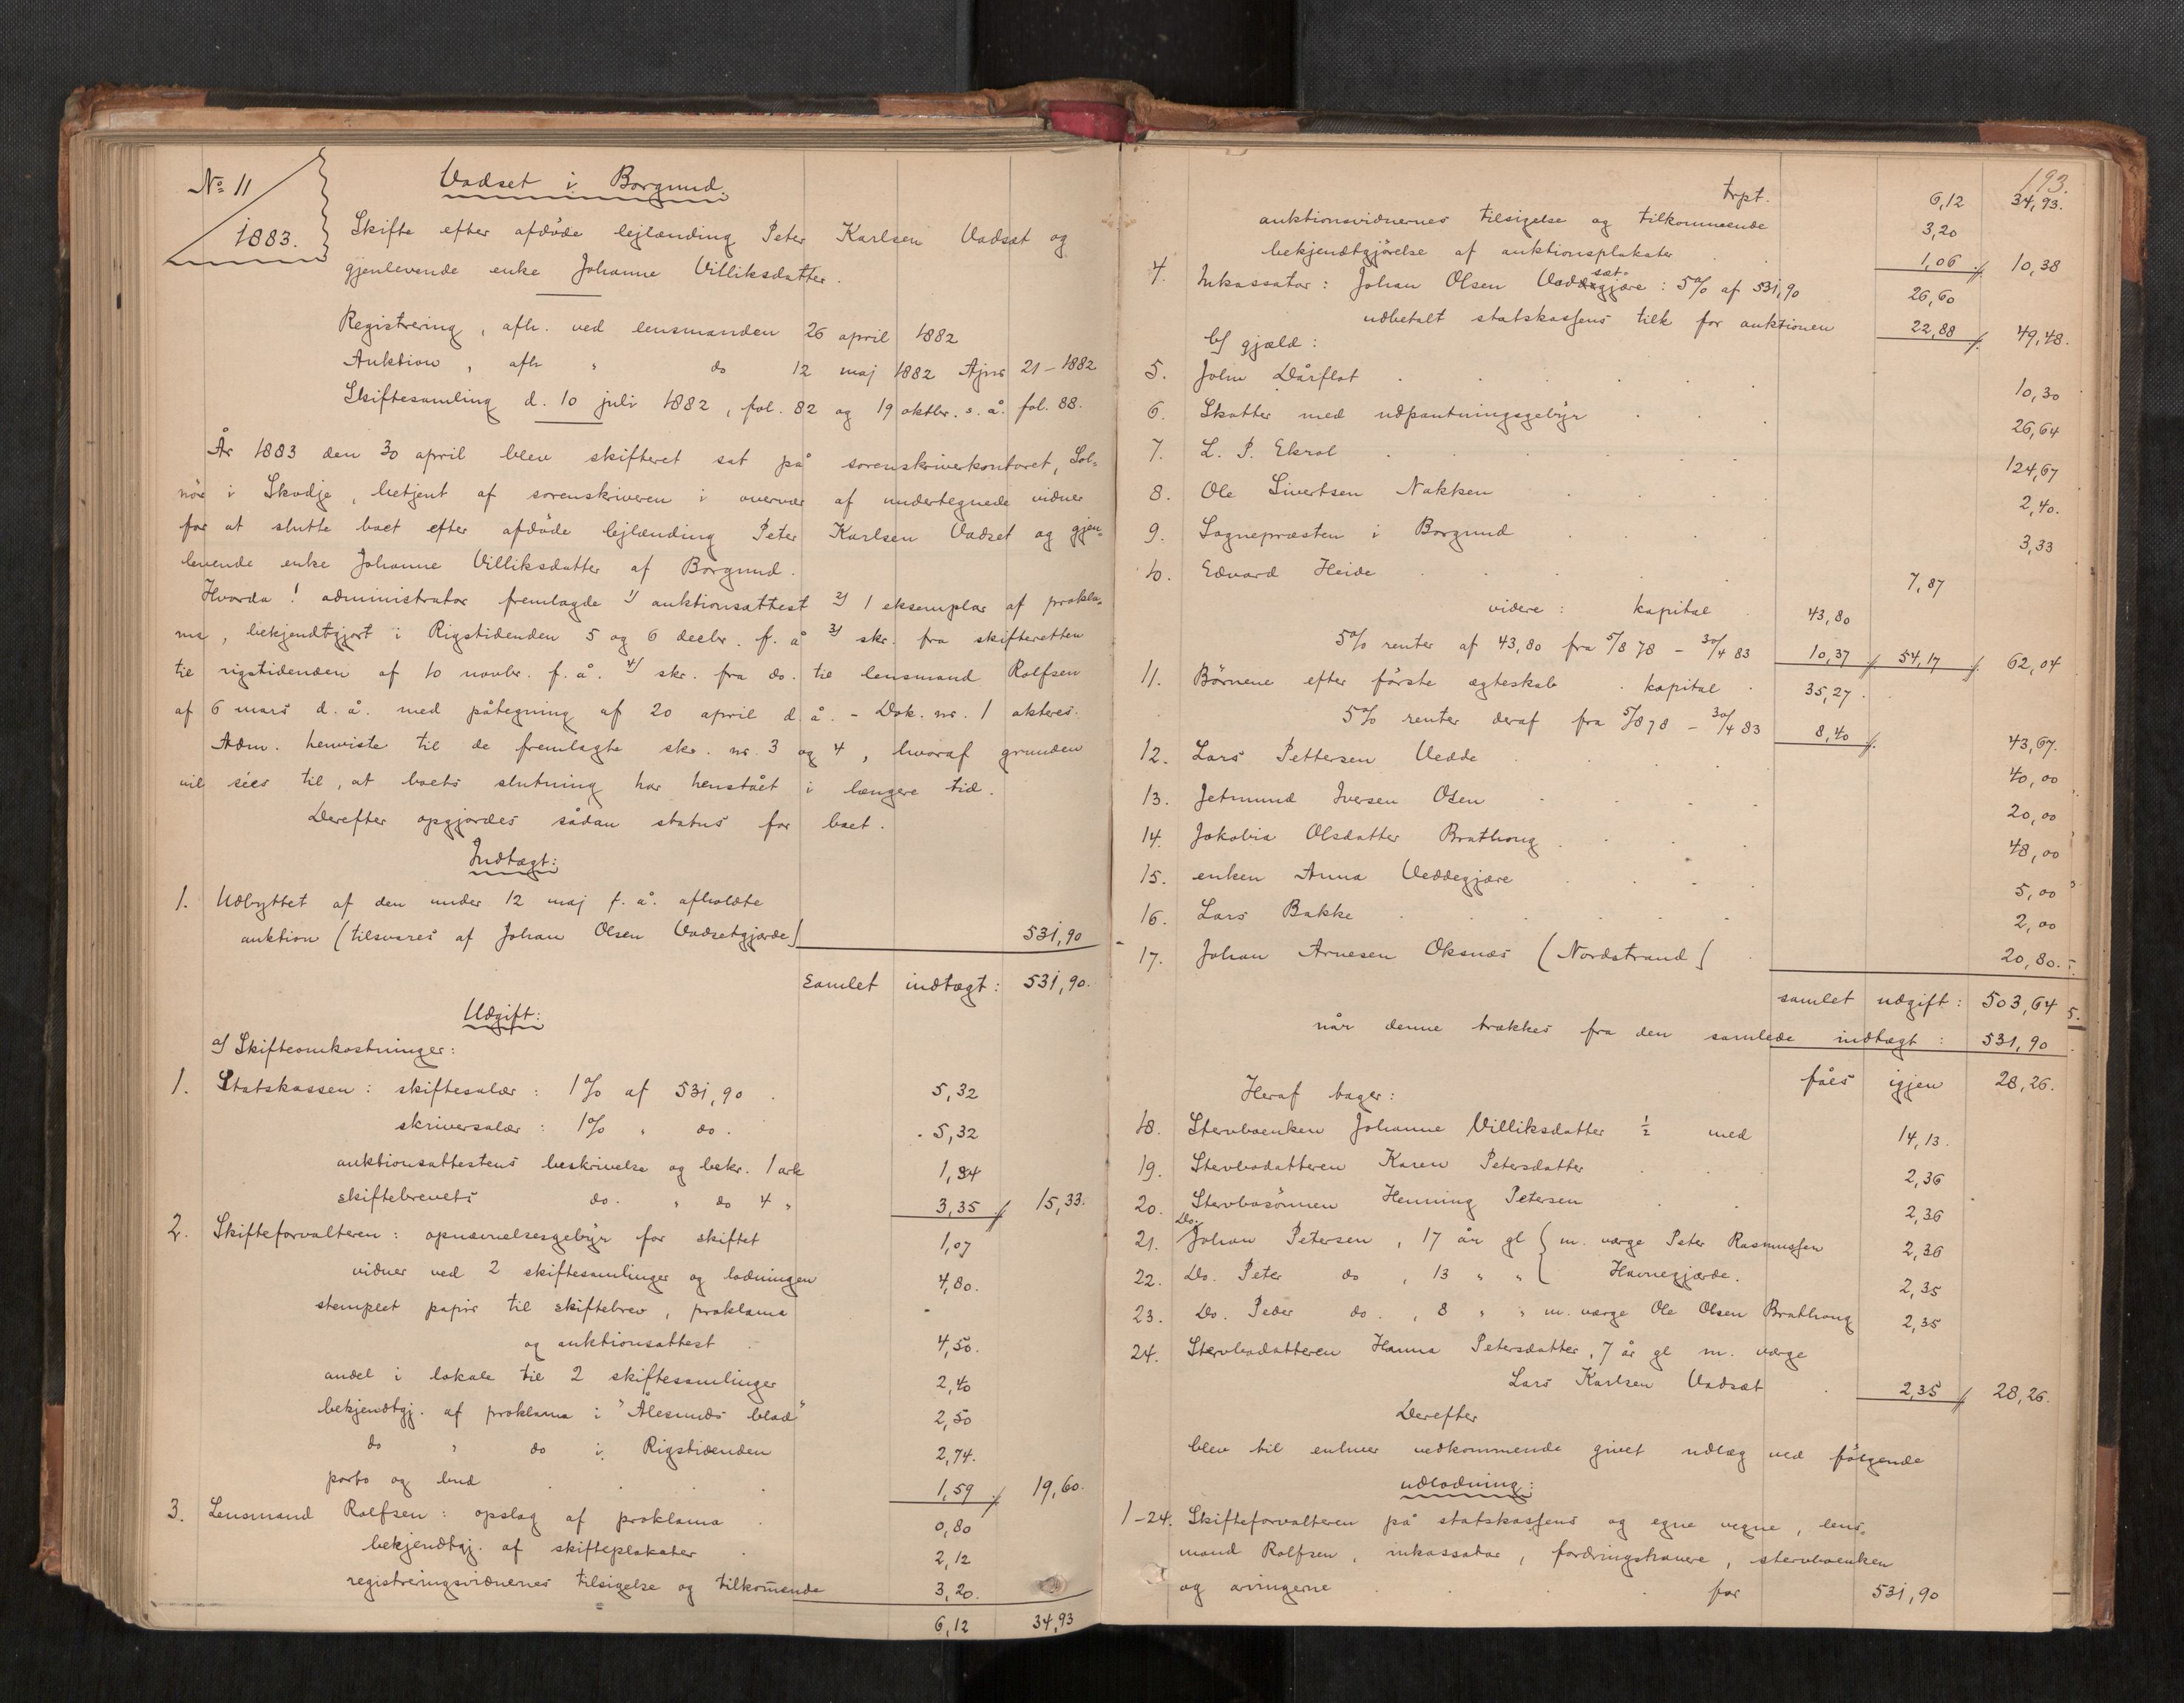 No 11
1883.
Vadset i Borgund.
Skifte efter afdøde lejlænding Peter Karlsen Vadset og
gjenlevende enke Johanne Villiksdatter.
Registrering, afh. ved lensmanden 26 april 1882
Auktion, afh " do 12 maj 1882 Ajns 21 - 1882
Skiftesamling d. 10 juli 1882, fol. 82 og 19 oktbr. s. å. fol. 88.
År 1883 den 30 april blev skifteret sat på sorenskriverkontoret, Sol-
nör i Skodje, betjent af sorenskriveren i overvær af undertegnede vidner
for at slutte boet efter afdöde lejlænding Peter Karlsen Vadset og gjen-
levende enke Johanne Villiksdatter af Borgund.
Hvorda! administrator fremlagde 1) auktionsattest 2) 1 eksemplar af prokla-
ma, bekjendtgjort i Rigstidenden 5 og 6 decbr. f. å 3) skr. fra skifteretten
til rigstidenden af 10 novbr. f. å. 4) skr. fra do. til lensmand Rolfsen
af 6 mars d. å. med påtegning af 20 april d. å. - Dok. nr. 1 akteres.
Adm. henviste til de fremlagte skr. nr. 3 og 4, hvoraf grunden
vil sées til, at boets slutning har henstået i længere tid.
Derefter opgjordes sådan status for boet.
Indtægt:
1. Udbyttet af den under 12 maj f. å. afholdte
auktion (tilsvares af Johan Olsen Vadsetgjærde) 531,90
Samlet indtægt: 531,90.
Udgift:
a) Skifteomkostninger:
1. Statskassen: skiftesalær: 1% af 531,90 . 5,32
skriversalær: 1% " do. . 5,32
auktionsattestens beskrivelse og bekr. 1 ark 1,34
skiftebrevets do. " do 4 " 3,35 // 15,33.
2. Skifteforvalteren: opnævnelsesgebyr for skiftet 1,07
vidner ved 2 skiftesamlinger og lodningen 4,80.
stemplet papir til skiftebrev, proklama
og auktionsattest . 4,50.
andel i lokale til 2 skiftesamlinger 2,40
bekjendtgj. af proklama i "Ålesunds blad" 2,50
do " do i Rigstidenden 2,74.
porto og bud . . . 1,59 // 19,60.
3. Lensmand Rolfsen: opslag af proklama . 0,80
bekjendtgj. af skifteplakater . 2,12
registreringsvidnernes tilsigelse og tilkommende 3,20.
6,12 34,93
193.
trpt. 6,12 34,93.
auktionsvidnernes tilsigelse og tilkommende 3,20
bekjendtgjörelse af auktionsplakater . 1,06 // 10,38
4. Inkassator: Johan Olsen Vadsætgjære: 5% af 531,90 26,60
udbetalt statskassens tilk for auktionen 22,88 // 49,48.
b) gjæld:
5. John Dårflot . . . . 10,30
6. Skatter med udpantningsgebyr . . 26,64
7. L. P. Ekrol . . . . 124,67
8. Ole Sivertsen Nakken . . . 2,40.
9. Sognepræsten i Borgund . . . 3,33
10. Edvard Heide . . . . 7,87
videre: kapital 43,80
5% renter af 43,80 fra 5/8 78 - 30/4 83 10,37 // 54,17 // 62,04
11. Börnene efter förste ægteskab . kapital . 35,27.
5% renter deraf fra 5/8 78 - 30/4 83 8,40 // 43,67.
12. Lars Pettersen Vedde . . . 40,00
13. Jetmund Iversen Osen . . . 20,00
14. Jakobia Olsdatter Brathoug . . . 48,00
15. enken Anna Veddegjære . . . 5,00
16. Lars Bakke . . . . 2,00
17. Johan Arnesen Oksnæs (Nordstrand) . 20,80.
samlet udgift: 503,64
når denne trækkes fra den samlede indtægt: 531,90
fåes igjen 28,26.
Heraf tager:
18. Stervboenken Johanne Villiksdatter 1/2 med 14,13.
19. Stervbodatteren Karen Petersdatter . . 2,36
20. Stervbosönnen Henning Petersen . . 2,36
21. Do. Johan Petersen, 17 år gl { m. værge Peter Rasmussen 2,36
22. Do. Peter do, 13 " " { Havnegjærde. 2,35
23. Do. Peder do., 8 " " m. værge Ole Olsen Brathoug 2,35
24. Stervbodatteren Hanna Petersdatter, 7 år gl m. værge
Lars Karlsen Vadset . 2,35 // 28,26.
Derefter
blev til enhver vedkommende givet udlæg ved fölgende
udlodning:
1-24. Skifteforvalteren på statskassens og egne vegne, lens-
mand Rolfsen, inkassator, fordringshavere, stervboenken
og arvingerne . . . for 531,90